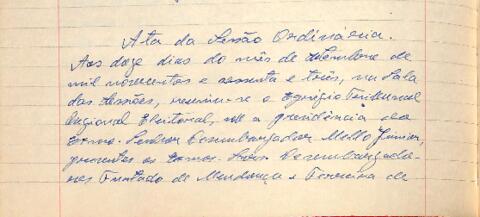 Ata da Sessão Ordinária.
Aos doze dias do mês de Setembro de
mil novecentos e sessenta e três, na Sala
das Sessões, reuniu-se o Egrégio Tribunal
Regional Eleitoral, sob a presidência do
Exmo. Senhor Desembargador Mello Júnior,
presentes os Exmos. Srs. Desembargado-
res Furtado de Mendonça e Ferreira de